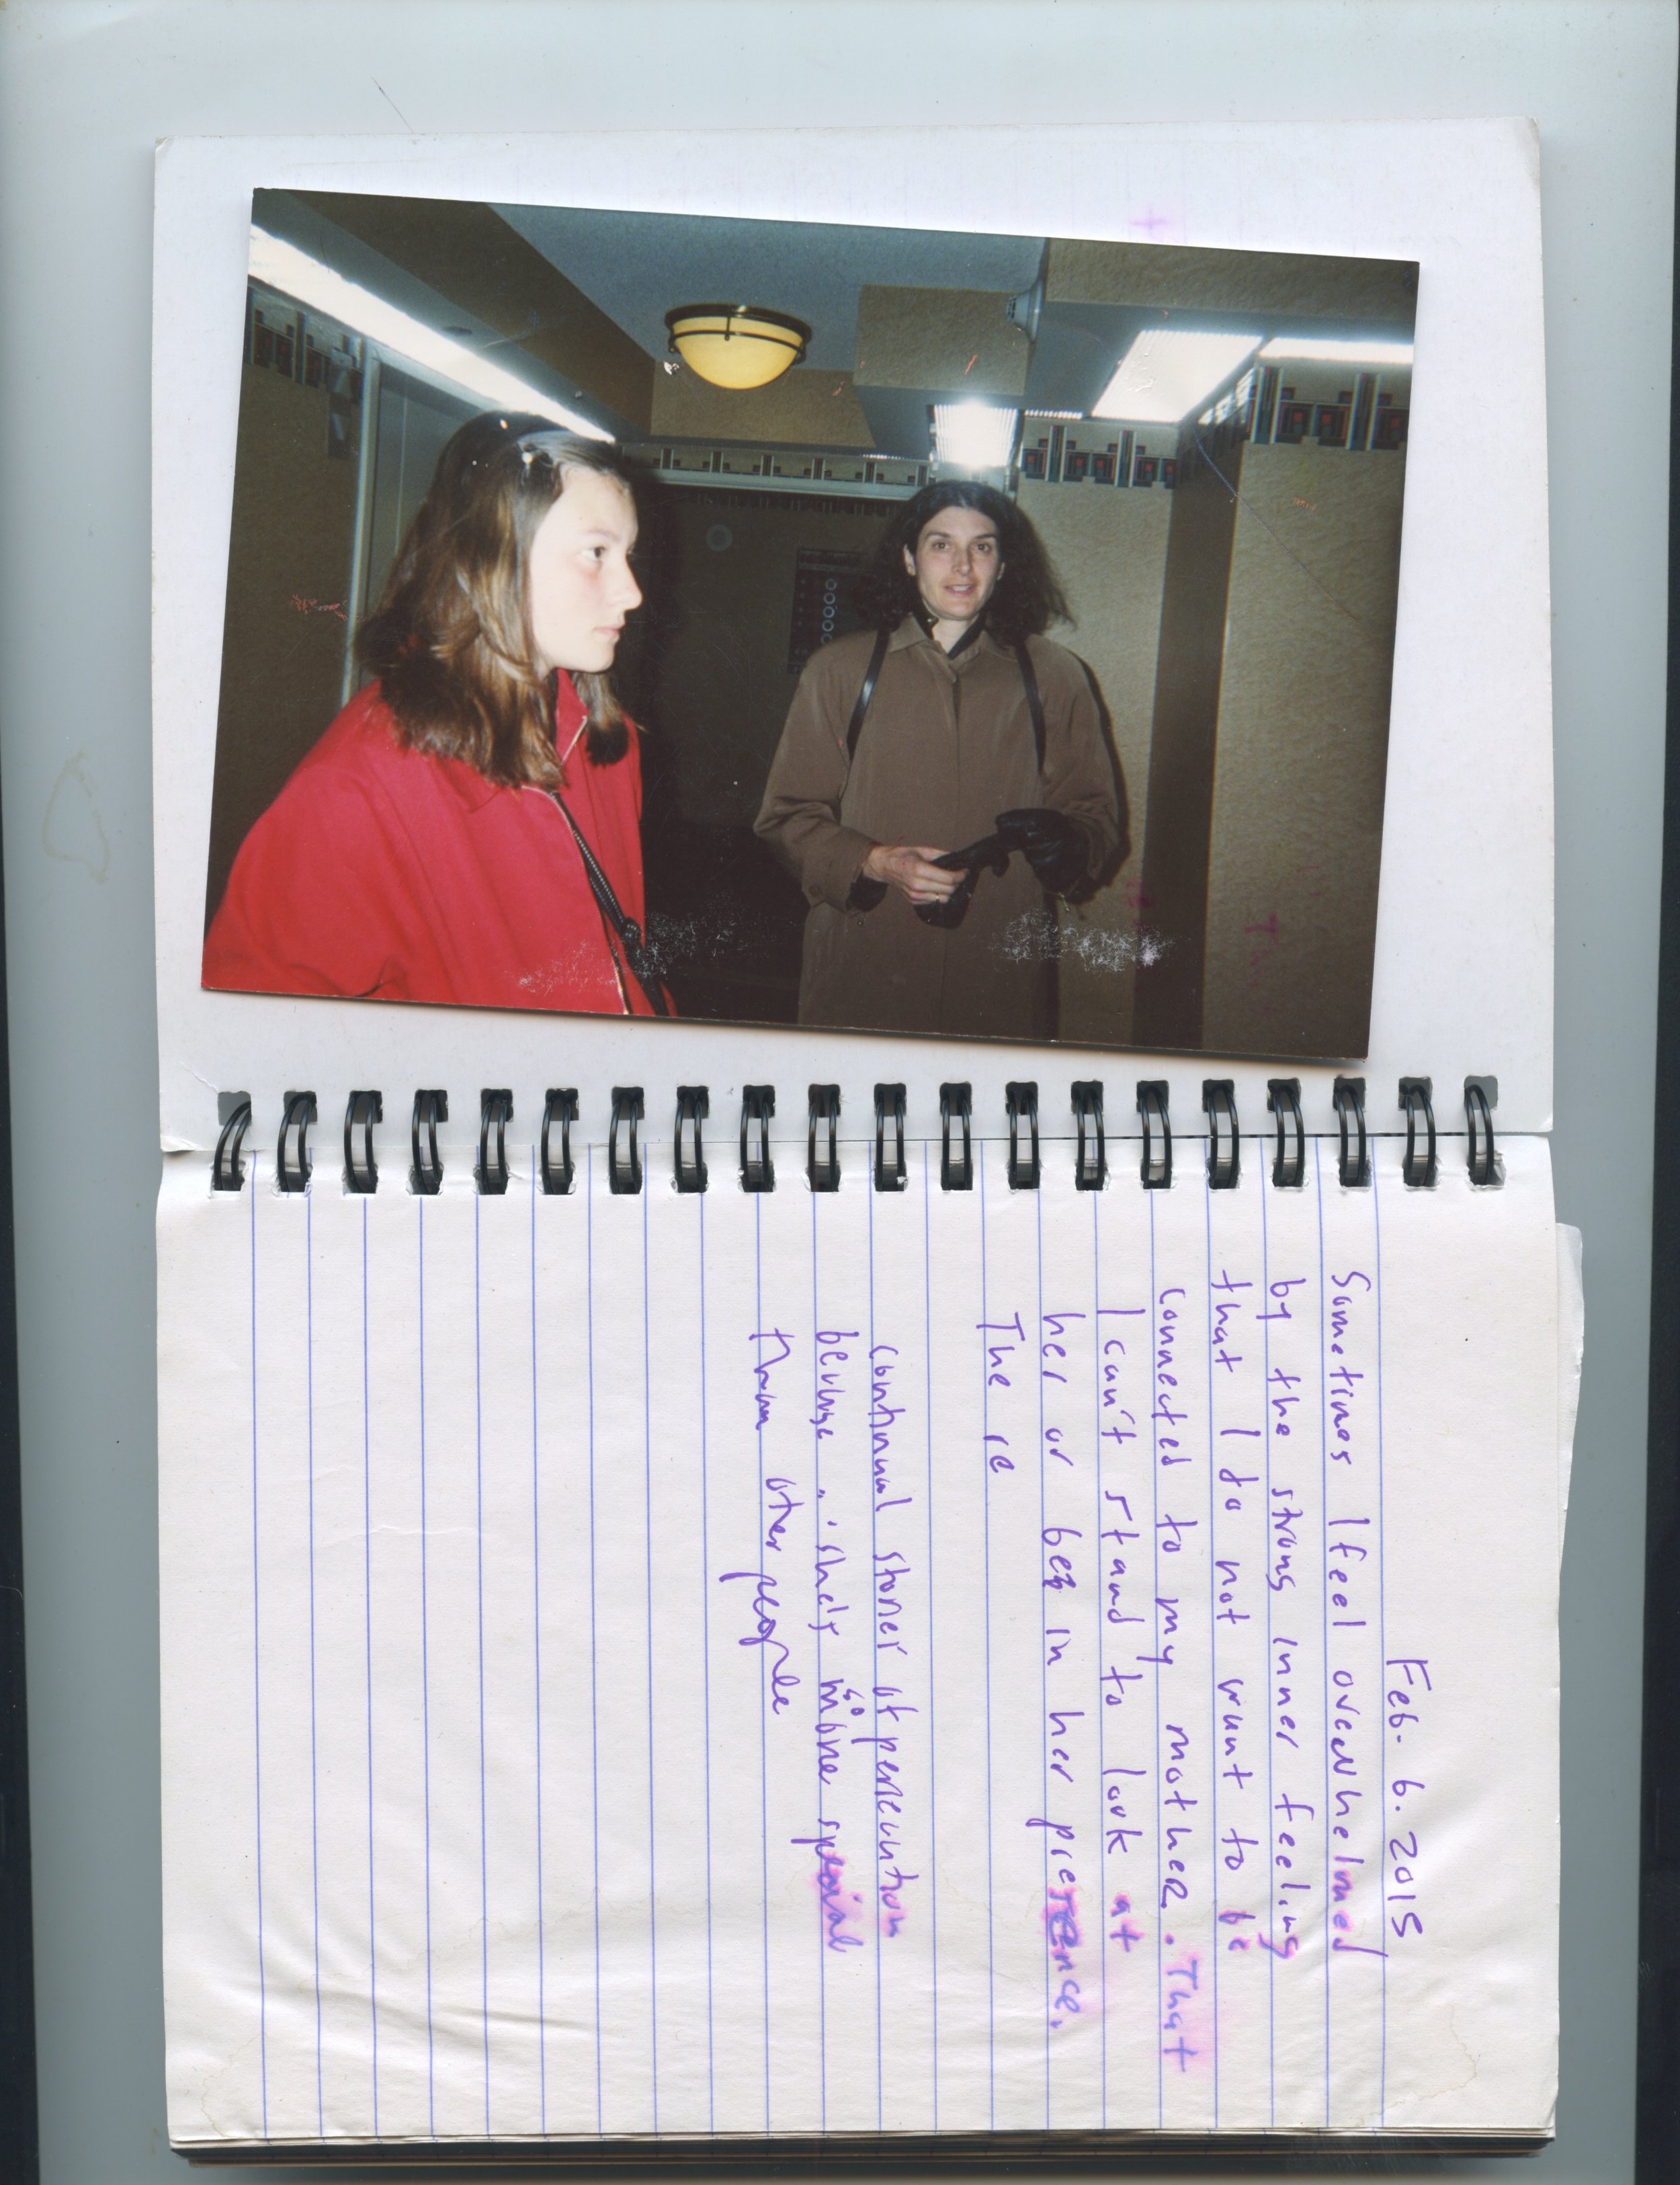 Feb. 6. 2015
Sometimes I feel overwhelmed
by the strong inner feeling
that I do not want to be
connected to my mother. That
I can't stand to look at
her or be in her presence.
The re
continual stories of persecution
because she's so more special
than other people